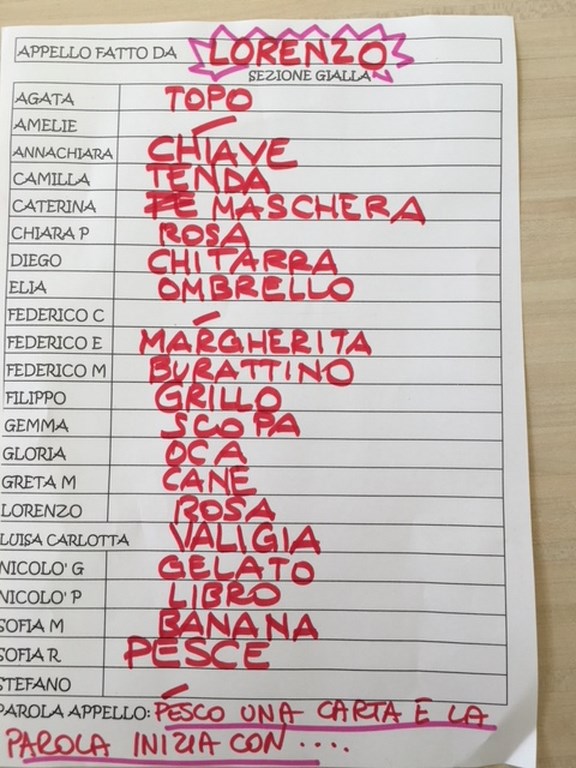 APPELLO FATTO DA LORENZO
SEZIONE GIALLA
AGATA TOPO
AMELIE
ANNACHIARA CHIAVE
CAMILLA TENDA
CATERINA PE MASCHERA
CHIARA P ROSA
DIEGO CHITARRA
ELIA OMBRELLO
FEDERICO C
FEDERICO E MARGHERITA
FEDERICO M BURATTINO
FILIPPO GRILLO
GEMMA SCOPA
GLORIA OCA
GRETA M CANE
LORENZO ROSA
LUISA CARLOTTA VALIGIA
NICOLO' G GELATO
NICOLO' P LIBRO
SOFIA M BANANA
SOFIA R PESCE
STEFANO
PAROLA APPELLO: PESCO UNA CARTA E LA
PAROLA INIZIA CON ....